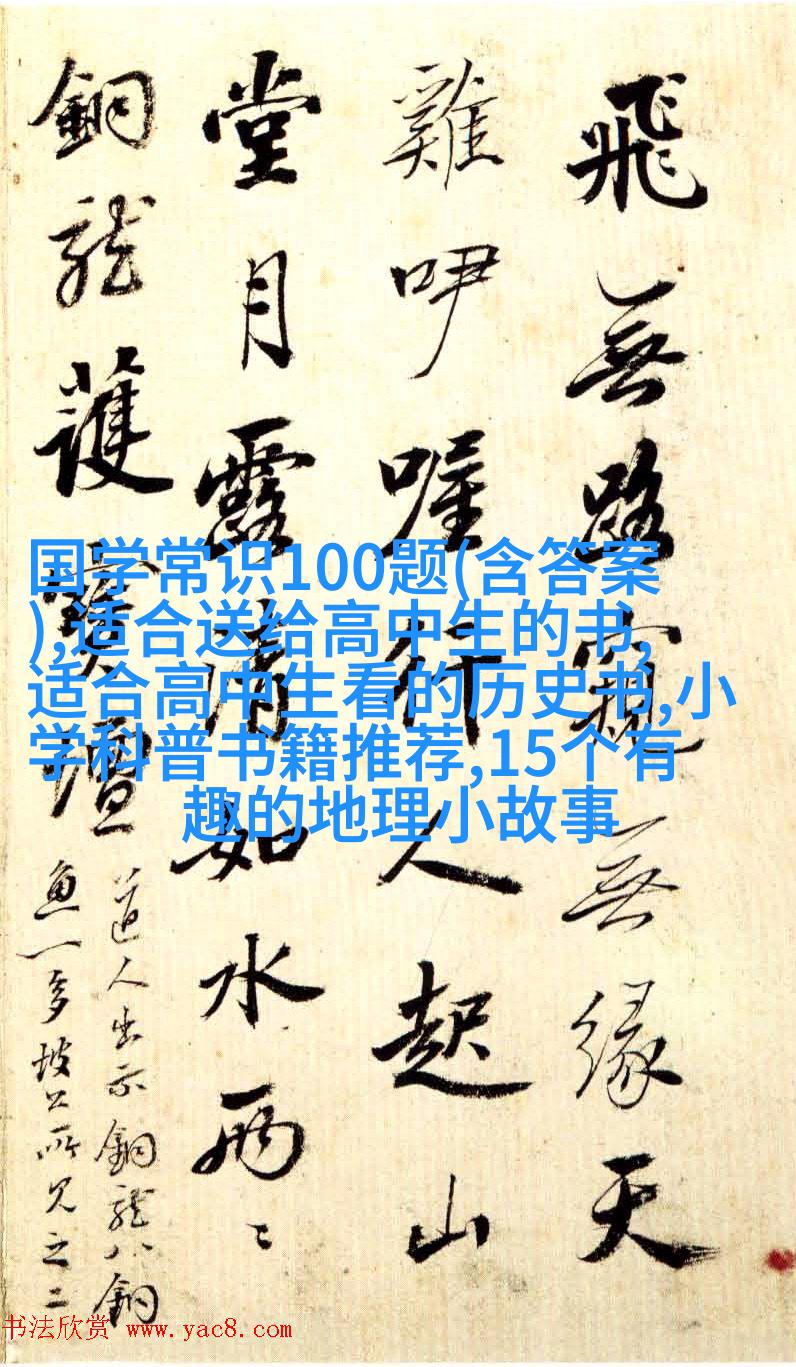 飛無路窺無緣天
雞咿喔行人起山
堂月露清如水兩〻
銅龍護寶壇
道人出示銅龍八銅
魚一多坡公所見之二
国学常识100题(含答案
),适合送给高中生的书,
适合高中生看的历史书,小
学科普书籍推荐,15个有
趣的地理小故事
书法欣赏 www.yac8.com